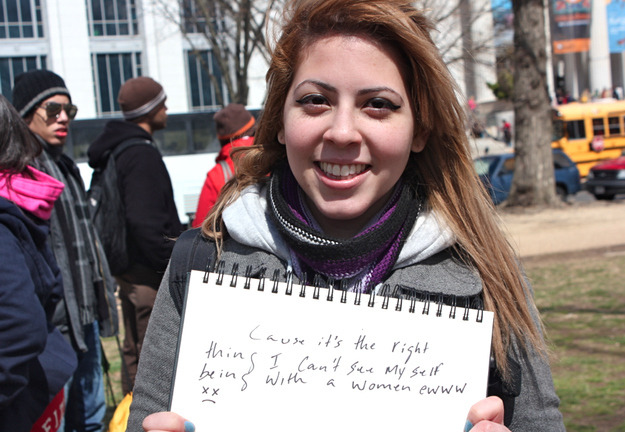 Cause it's the right
thing I Can't see My self
being with a women ewww
xx